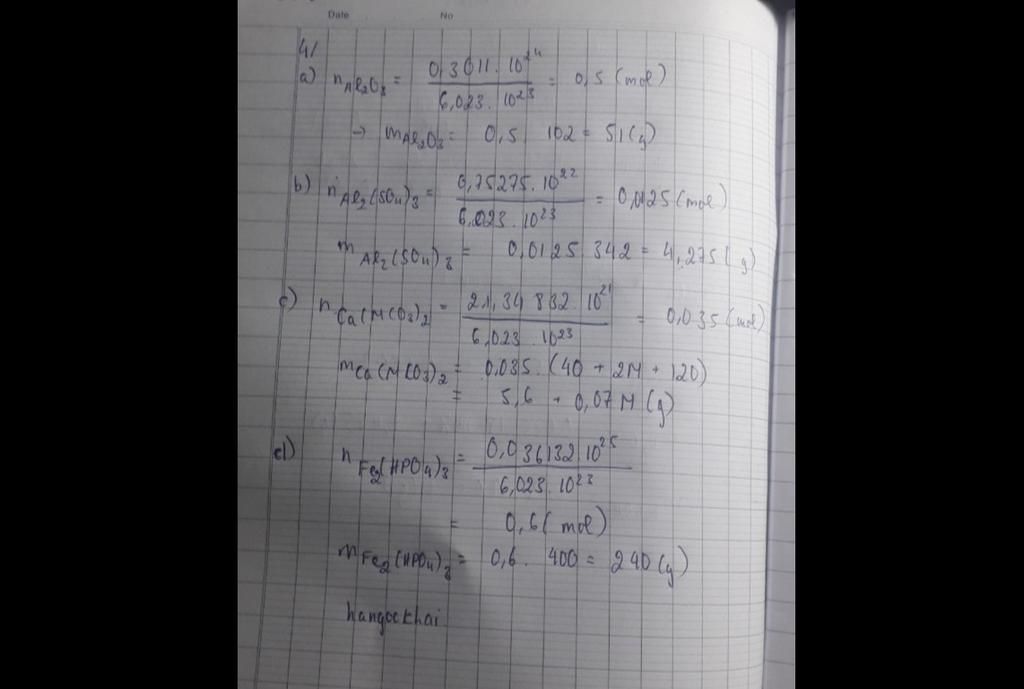 Date No
4/
a) nAl₂O₃ = 0,3011. 10²⁴ / 6,023. 10²³ = 0,5 (mol)
→ mAl₂O₃ = 0,5. 102 = 51(g)
b) nAl₂(SO₄)₃ = 0,75275. 10²² / 6,023. 10²³ = 0,0125 (mol)
mAl₂(SO₄)₃ = 0,0125 342 = 4,275 (g)
c) nCa(MCO₃)₂ = 21,34 832. 10²¹ / 6,023. 10²³ = 0,035 (mol)
mCa(MCO₃)₂ = 0,035. (40 + 2M + 120)
= 5,6 + 0,07 M (g)
d) nFe₂(HPO₄)₃ = 0,036132. 10²⁵ / 6,023. 10²³
= 0,6 (mol)
mFe₂(HPO₄)₃ = 0,6. 400 = 240 (g)
hangockhai